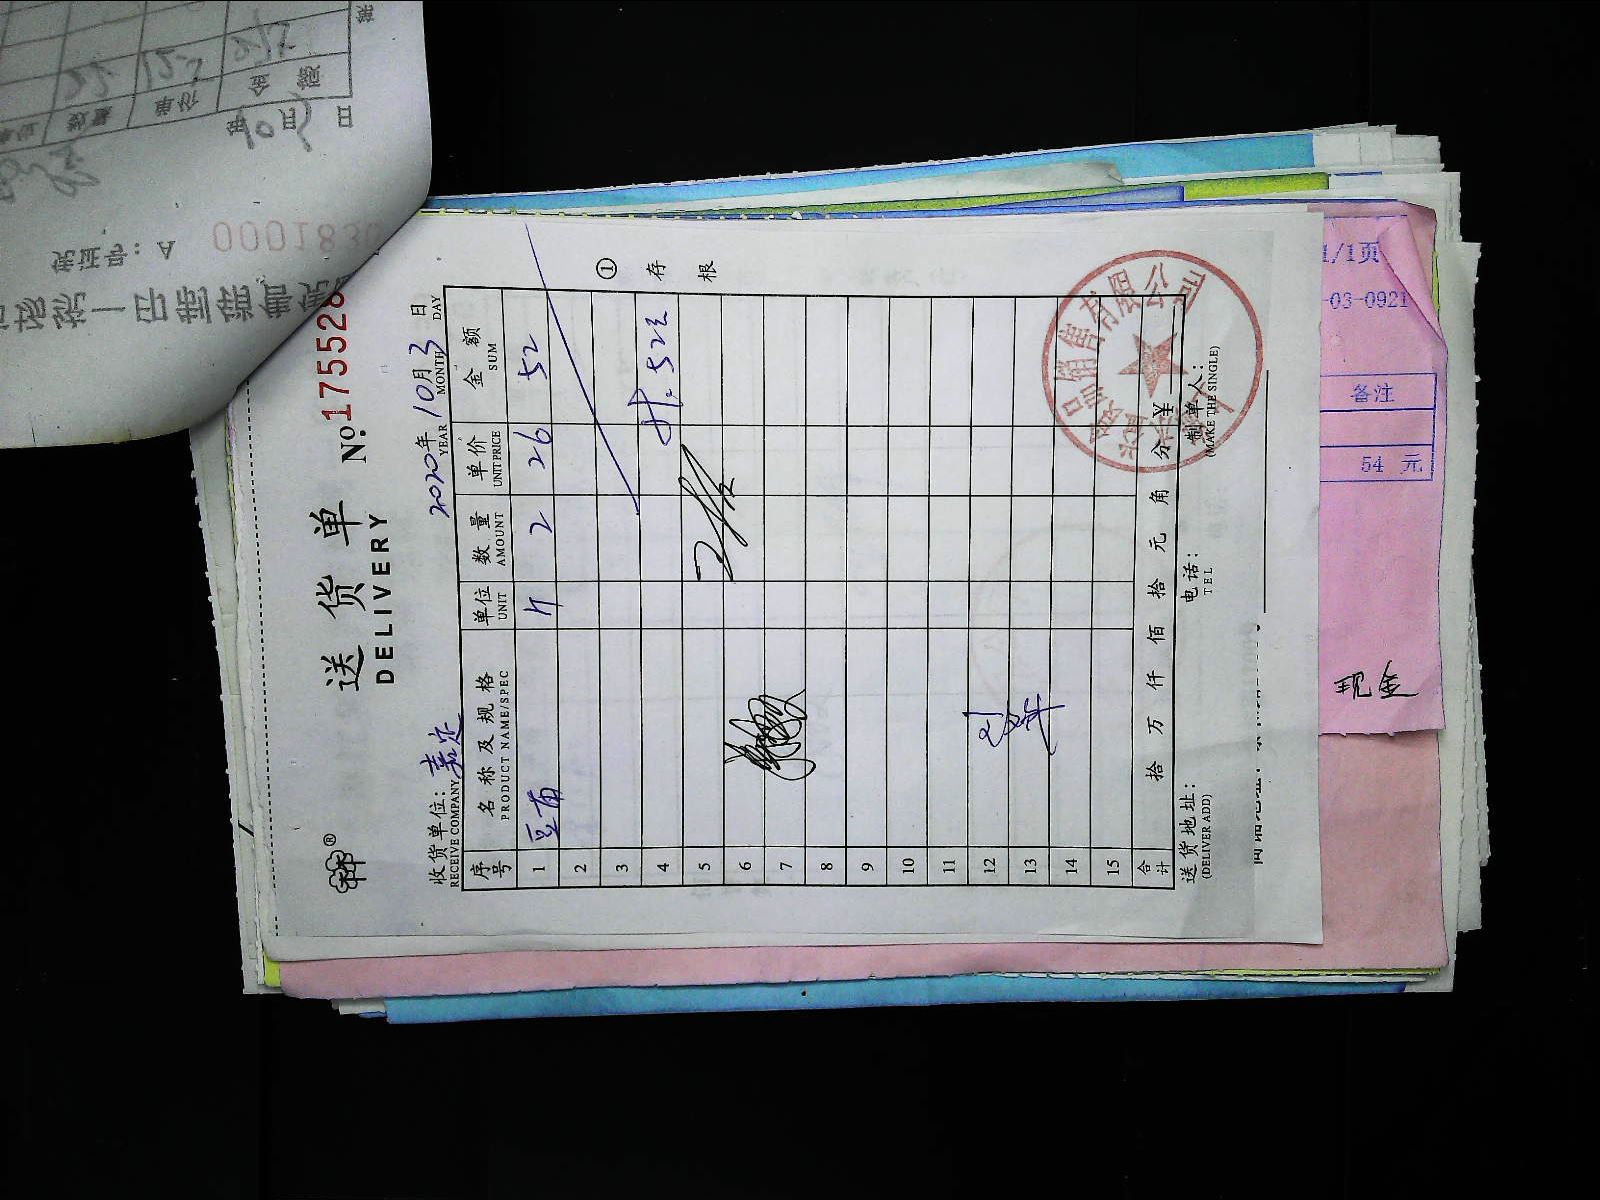 送货单
DELIVERY
No. 1755528
收货单位：嘉定
RECEIVE COMPANY
2020年10月3日
YEAR MONTH DAY
序号 名称及规格 单位 数量 单价 金额
PRODUCT NAME/SPEC UNIT AMOUNT UNIT PRICE SUM
1 斤 2 26 52
2
3
4 计:52元
5
6
7
8
9
10
11
12
13
14
15
合计 拾 万 仟 佰 拾 元 角 分 ¥
送货地址：
(DELIVER ADD)
电话：
TEL
制单人：
(MAKE THE SINGLE)
① 存根
食品销售有限公司
1/1页
-03-0921
备注
54 元
现金
凭证号：A 0001830
数量 单价 金额